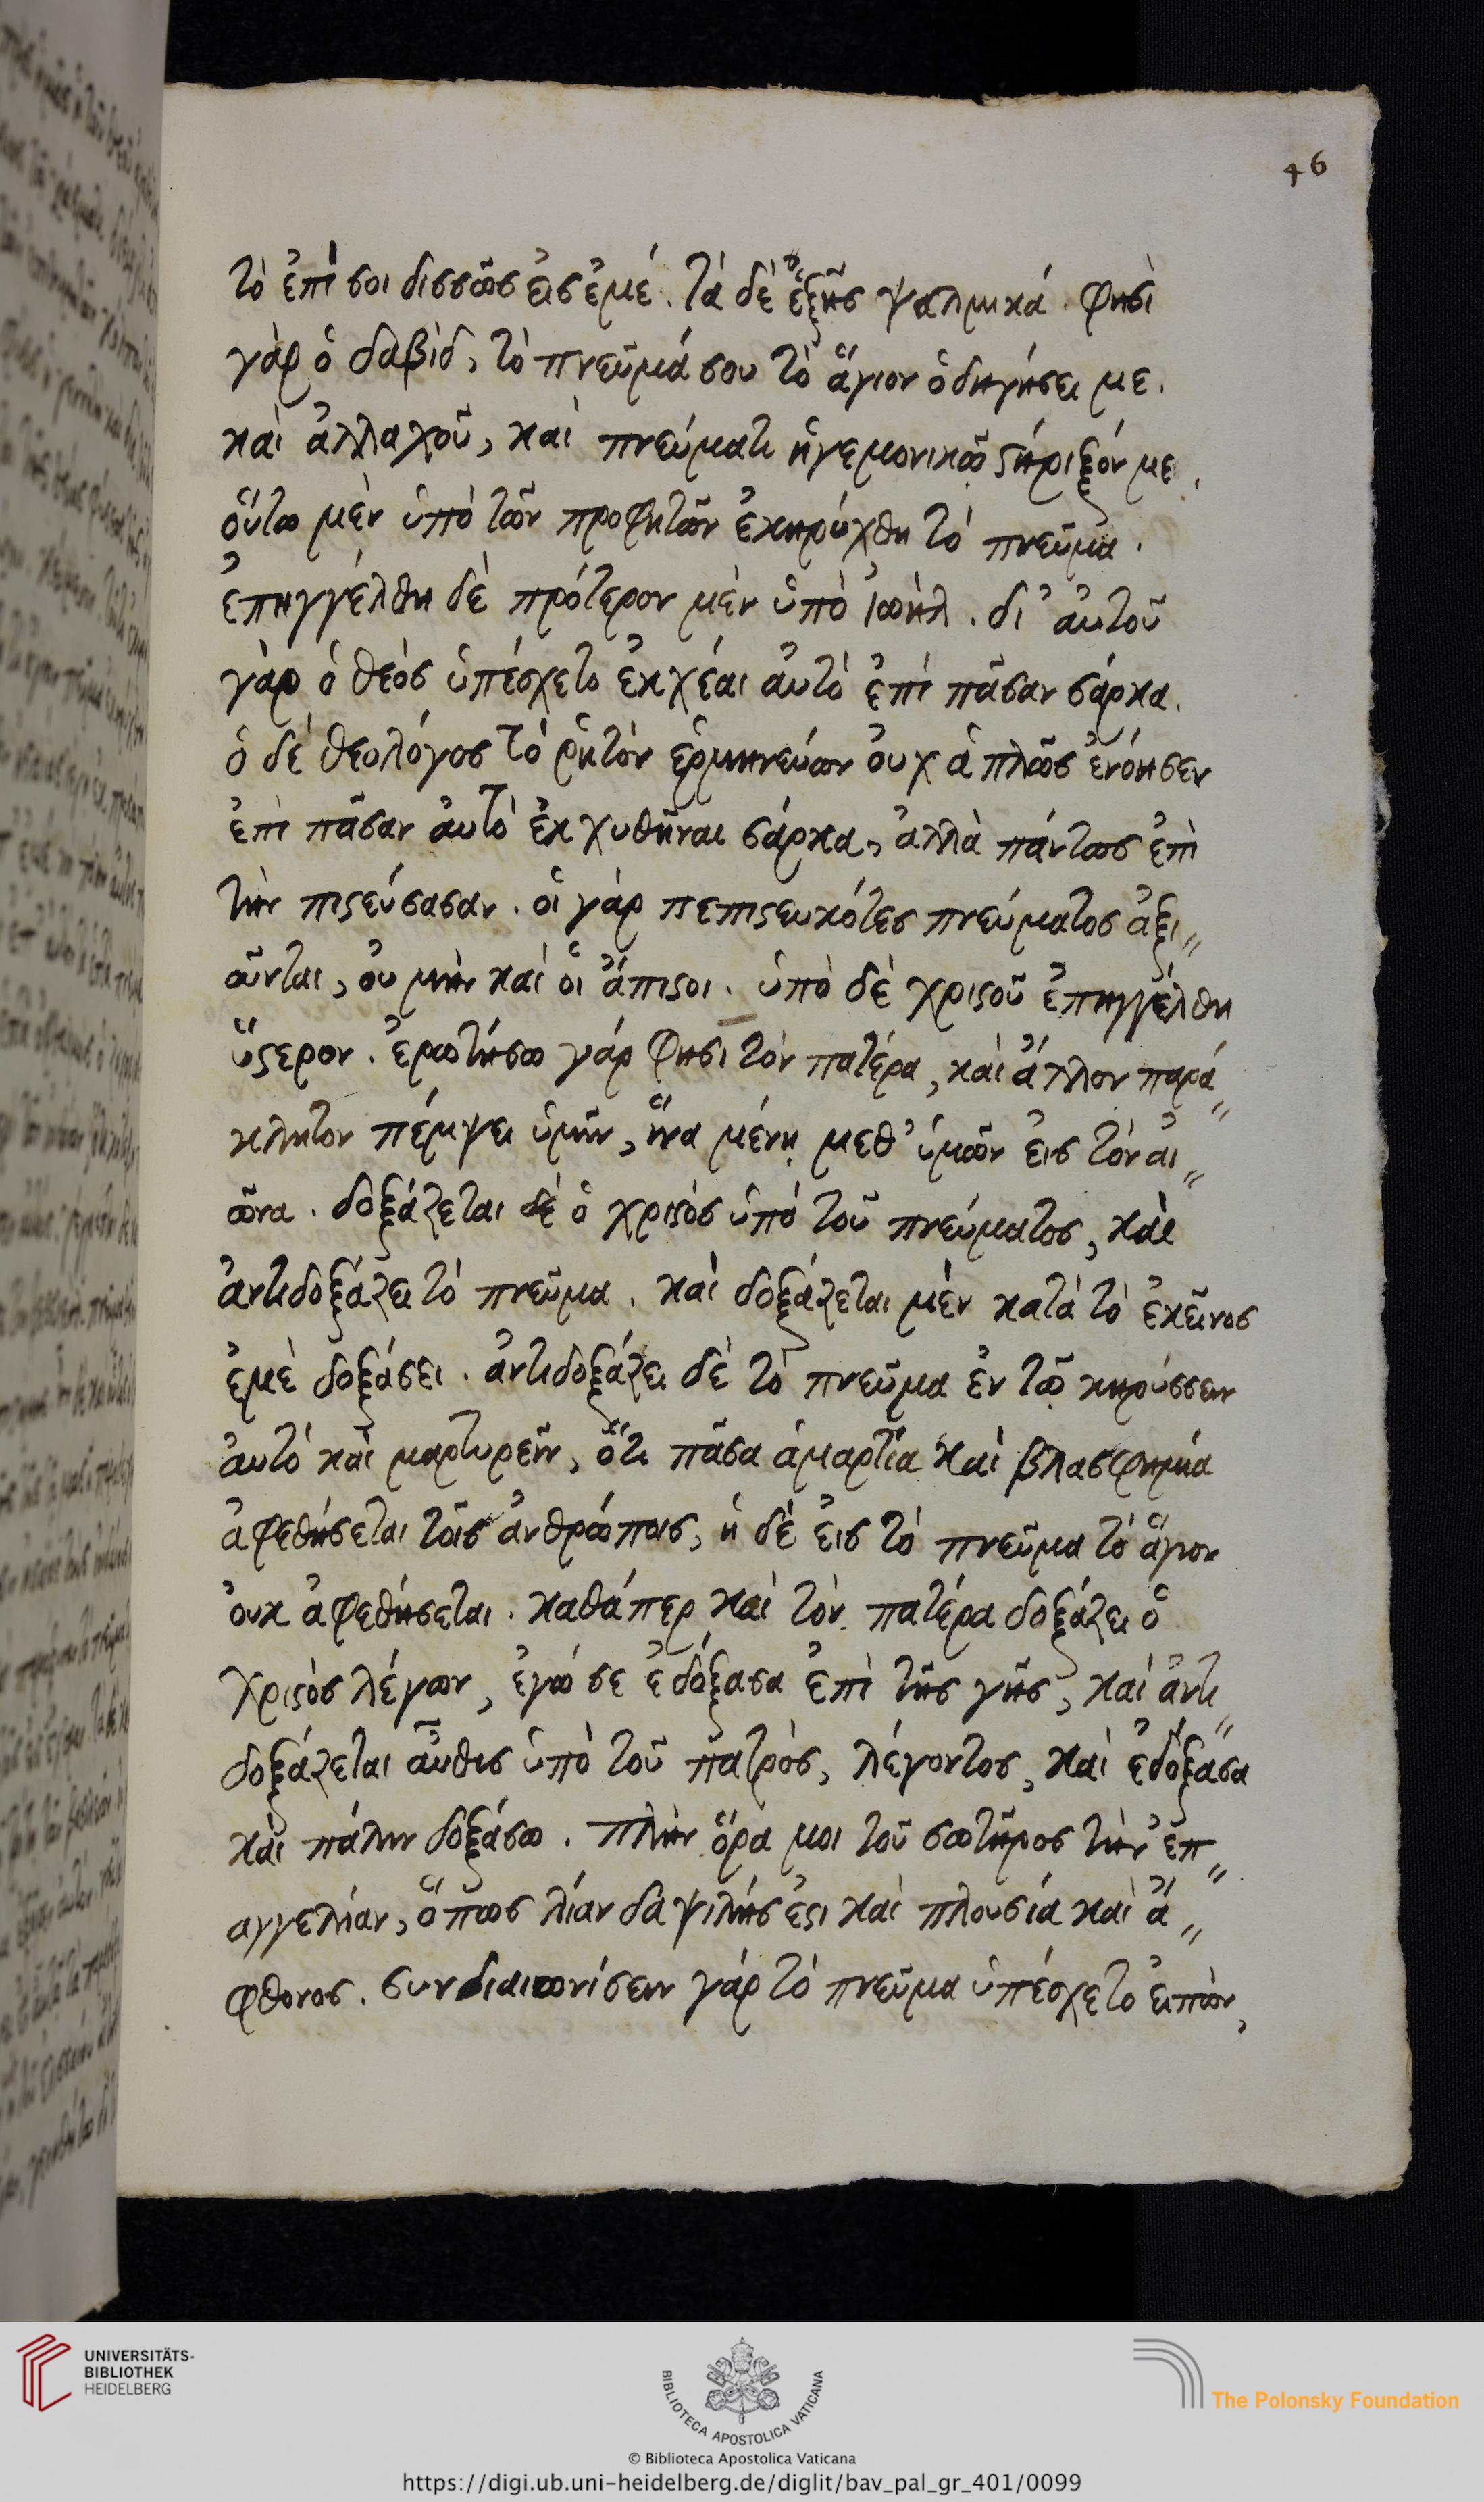 46
τὸ ἐπὶ σοι δισσῶς εἰς ἐμέ. τὰ δὲ ἑξῆς ψαλμικά. φησὶ
γὰρ ὁ δαβίδ, τὸ πνεῦμά σου τὸ ἅγιον ὁδηγήσει με.
καὶ ἀλλαχοῦ, καὶ πνεύματι ἡγεμονικῶ στήριξόν με.
οὕτω μὲν ὑπὸ τῶν προφητῶν ἐκηρύχθη τὸ πνεῦμα.
ἐπηγγέλθη δὲ πρότερον μὲν ὑπὸ ἰωήλ. δι' αὐτοῦ
γὰρ ὁ θεὸς ὑπέσχετο ἐκχέαι αὐτὸ ἐπὶ πᾶσαν σάρκα.
ὁ δὲ θεολόγος τὸ ῥητὸν ἑρμηνεύων οὐχ ἁπλῶς ἐνόησεν
ἐπὶ πᾶσαν αὐτὸ ἐκχυθῆναι σάρκα, ἀλλὰ πάντως ἐπὶ
τὴν πιστεύσασαν. οἱ γὰρ πεπιστευκότες πνεύματος ἀξι
οῦνται, οὐ μὴν καὶ οἱ ἄπιστοι. ὑπὸ δὲ χριστοῦ ἐπηγγέλθη
ὕστερον. ἐρωτήσω γάρ φησι τὸν πατέρα, καὶ ἄλλον παρά
κλητον πέμψει ὑμῖν, ἵνα μένῃ μεθ' ὑμῶν εἰς τὸν αἰ
ῶνα. δοξάζεται δὲ ὁ χριστὸς ὑπὸ τοῦ πνεύματος, καὶ
ἀντιδοξάζει τὸ πνεῦμα. καὶ δοξάζεται μὲν κατὰ τὸ ἐκεῖνος
ἐμὲ δοξάσει. ἀντιδοξάζει δὲ τὸ πνεῦμα ἐν τῶ κηρύσσειν
αὐτὸ καὶ μαρτυρεῖν, ὅτι πᾶσα ἁμαρτία καὶ βλασφημία
ἀφεθήσεται τοῖς ἀνθρώποις, ἡ δὲ εἰς τὸ πνεῦμα τὸ ἅγιον
οὐκ ἀφεθήσεται. καθάπερ καὶ τὸν πατέρα δοξάζει ὁ
χριστὸς λέγων, ἐγώ σε ἐδόξασα ἐπὶ τῆς γῆς, καὶ ἀντι
δοξάζεται αὖθις ὑπὸ τοῦ πατρὸς, λέγοντος, καὶ ἐδόξασα
καὶ πάλιν δοξάσω. πλὴν ὅρα μοι τοῦ σωτῆρος τὴν ἐπ
αγγελίαν, ὅπως λίαν δαψιλής ἐστι καὶ πλουσία καὶ ἄ
φθονος. συνδιαιωνίσειν γὰρ τὸ πνεῦμα ὑπέσχετο εἰπὼν,
UNIVERSITÄTS-
BIBLIOTHEK
HEIDELBERG
BIBLIOTECA APOSTOLICA VATICANA
The Polonsky Foundation
© Biblioteca Apostolica Vaticana
https://digi.ub.uni-heidelberg.de/diglit/bav_pal_gr_401/0099